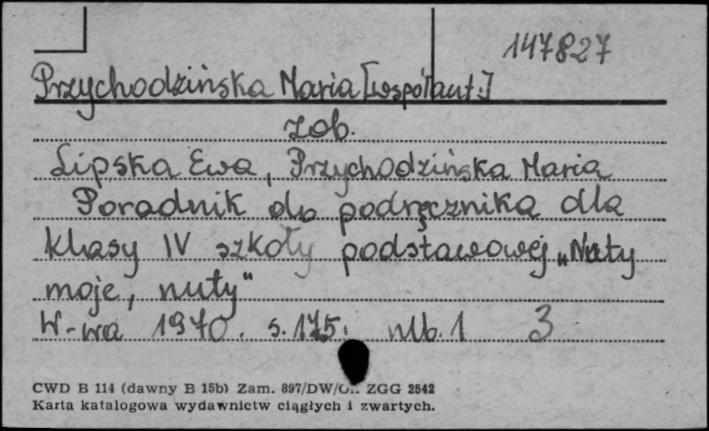 147827
Przychodzińska Maria [współaut.]
zob.
Lipska Ewa, Przychodzińska Maria
Poradnik do podręcznika dla
klasy IV szkoły podstawowej „Nuty
moje, nuty"
W-wa 1970. s. 175. nlb. 1 3
CWD B 114 (dawny B 15b) Zam. 897/DW/ ZGG 2542
Karta katalogowa wydawnictw ciągłych i zwartych.